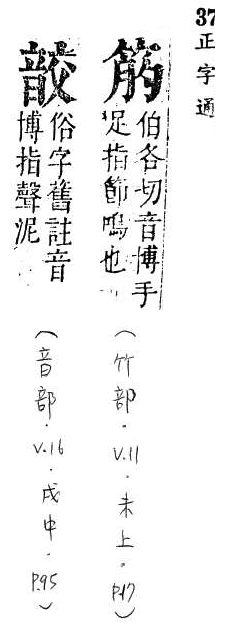 37
正字通
伯各切音博手
足指節鳴也
(竹部.V.11.未上.P.17)
俗字舊註音
博指聲泥
(音部.V.16.戌中.P.95)